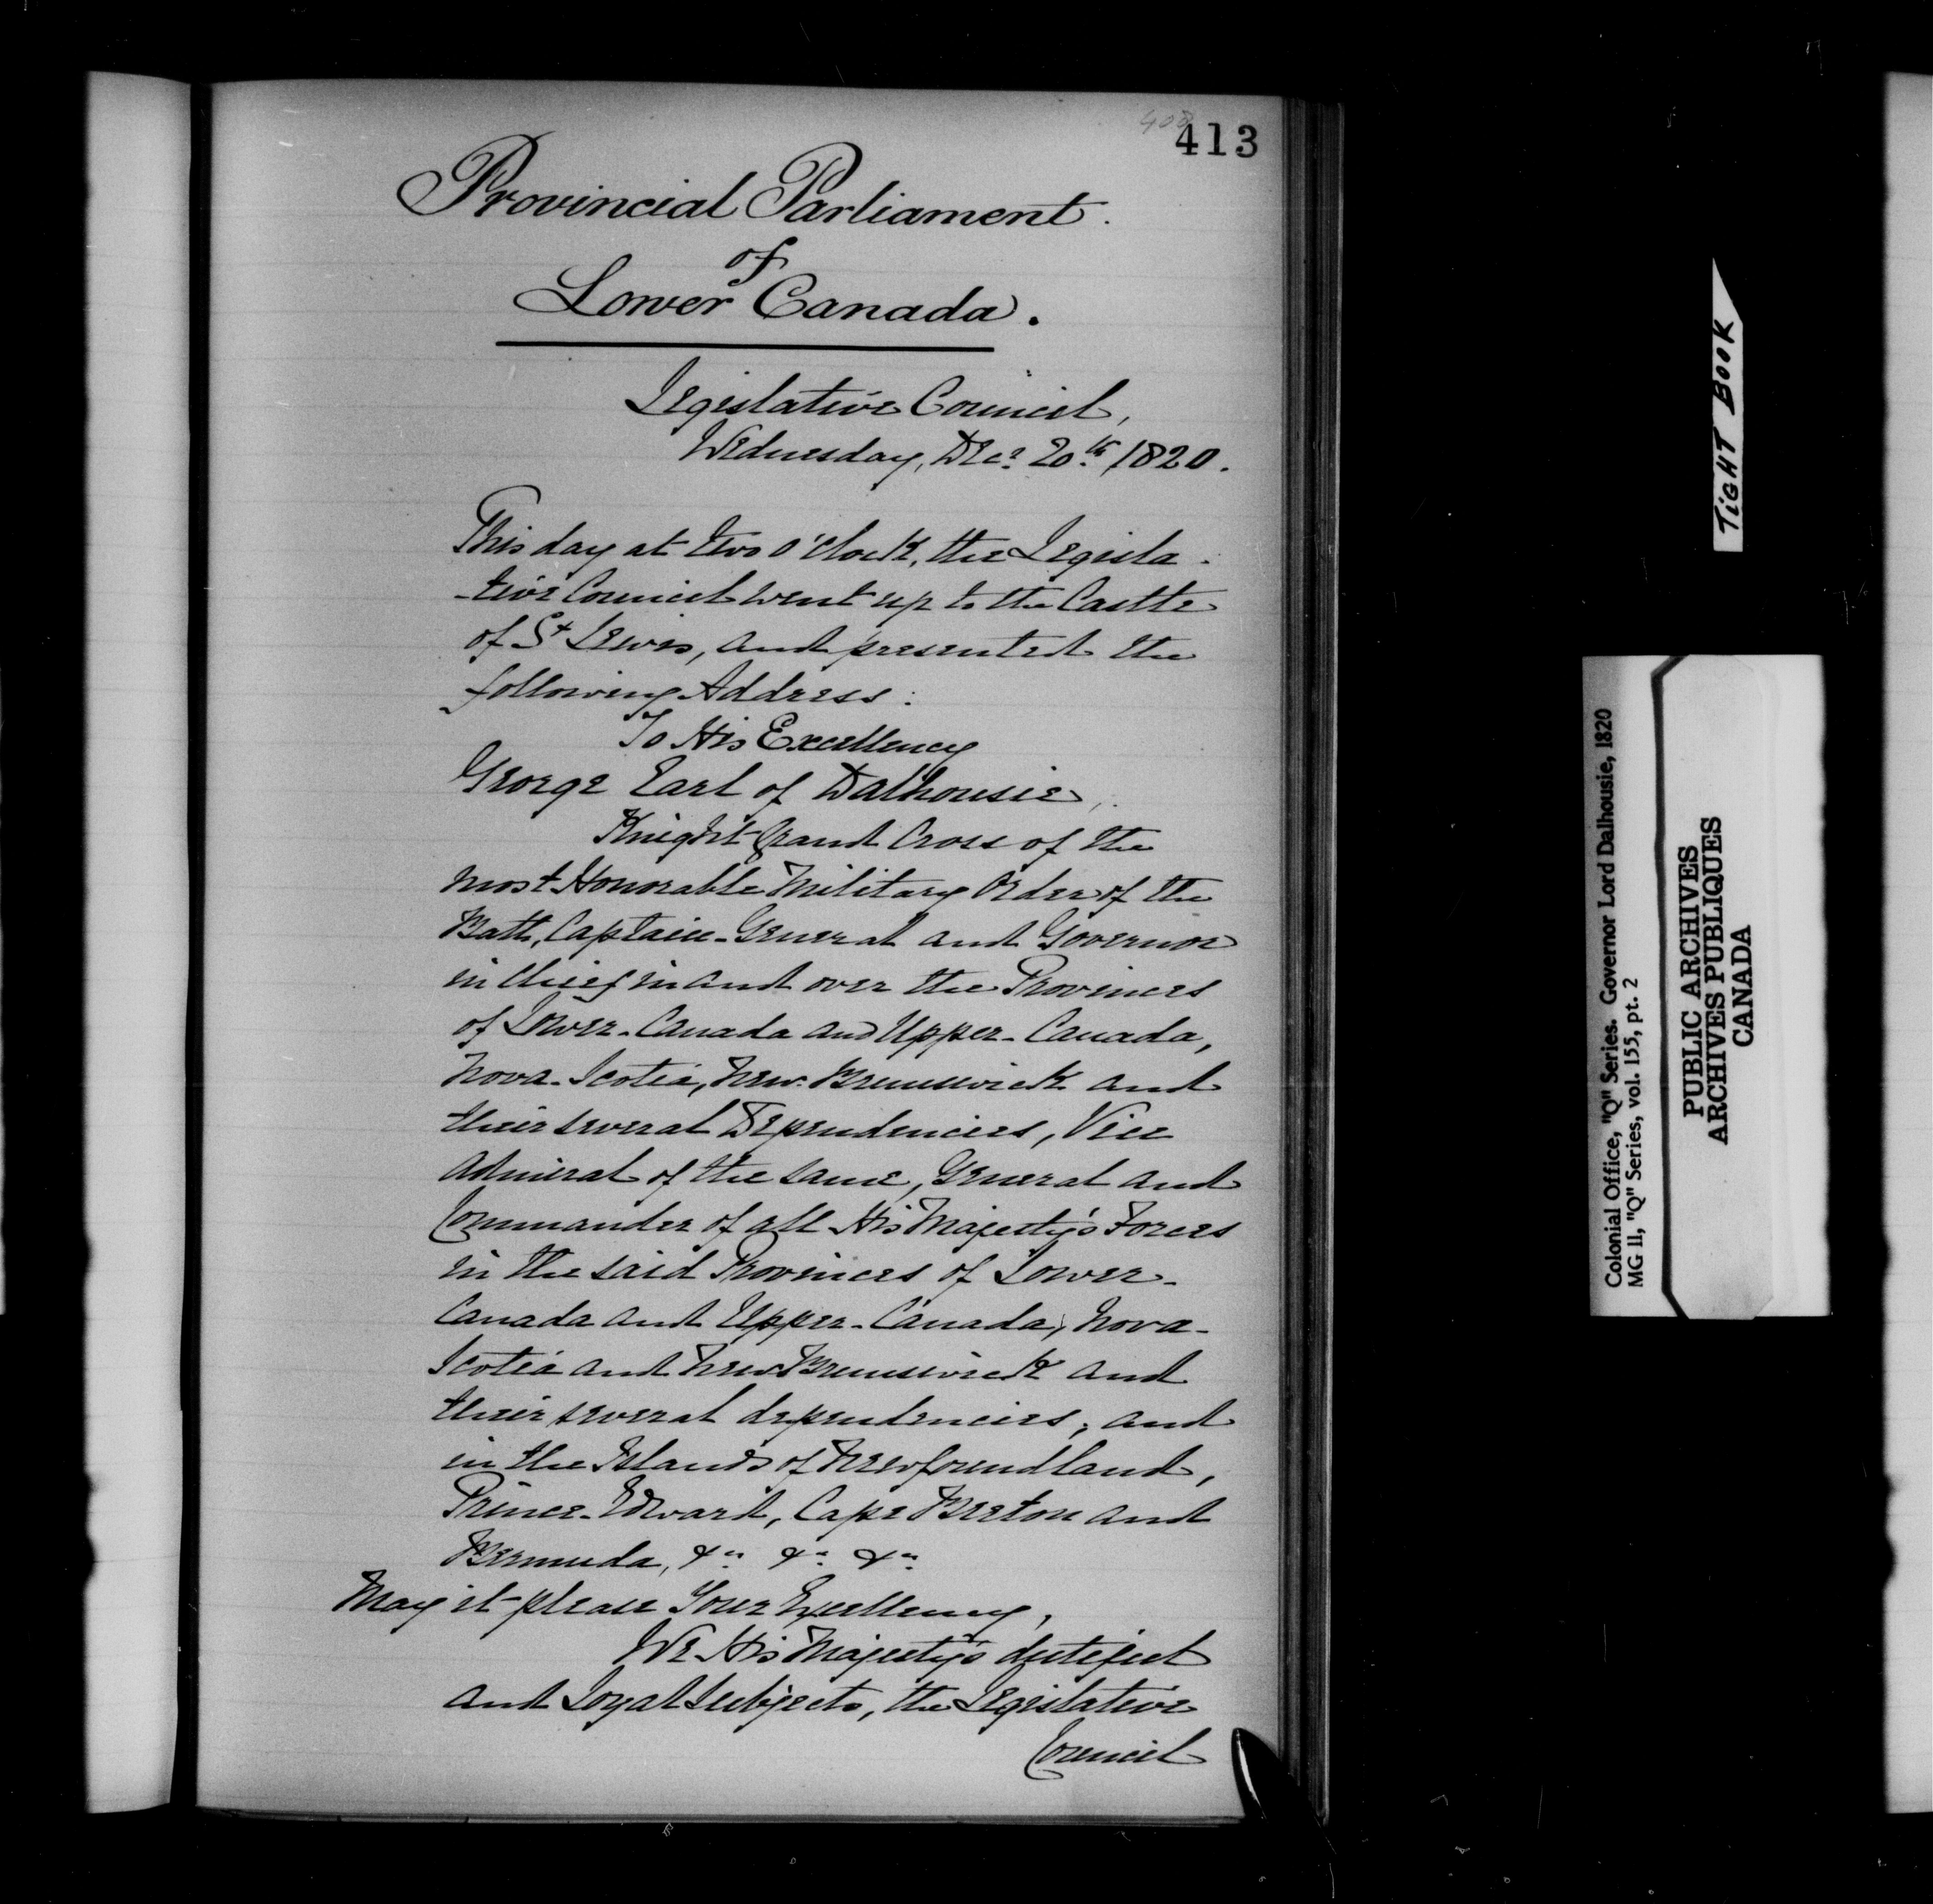 413
Provincial Parliament.
of
Lower Canada.
Legislative Council,
Wednesday, Decr 20th, 1820.
This day at two o'clock, the Legisla-
-tive Council went up to the Castle
of St Lewis, and presented the
following Address:
To His Excellency
George Earl of Dalhousie,
Knight Grand Cross of the
most Honorable Military Order of the
Bath, Captain-General and Governor
in Chief in and over the Provinces
of Lower-Canada and Upper-Canada,
Nova-Scotia, New-Brunswick and
their several Dependencies, Vice
Admiral of the same, General and
Commander of all His Majesty's Forces
in the said Provinces of Lower-
Canada and Upper-Canada, Nova-
Scotia and New Brunswick and
their several dependencies, and
in the Islands of Newfoundland,
Prince-Edward, Cape Breton and
Bermuda, &a &a &a
May it please Your Excellency,
We His Majesty's dutiful
and Loyal Subjects, the Legislative
Council
TIGHT BOOK
Colonial Office, "Q" Series. Governor Lord Dalhousie, 1820
MG 11, "Q" Series, vol. 155, pt. 2
PUBLIC ARCHIVES
ARCHIVES PUBLIQUES
CANADA